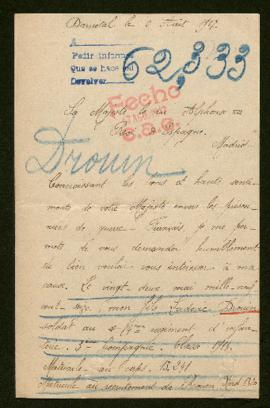 Darnetal le 2 Août 1917
A
Pedir informe
Que se hace
Devolver
62,333
Fecho
Sa Majesté le Roi Alphonse XIII
Roi d'Espagne.
Madrid
Drouin
Connaissant les si hauts senti-
ments de votre Majesté envers les prison-
niers de guerre Français, je me per-
mets de vous demander humblement
de bien vouloir vous intéresser à ma
cause. Le vingt deux mai mille neuf
cent seize, mon fils Drouin
soldat au régiment d'infan-
terie. 3me Compagnie. Classe 1911.
Matricule au corps
Matricule au recrutement de Rouen Nord